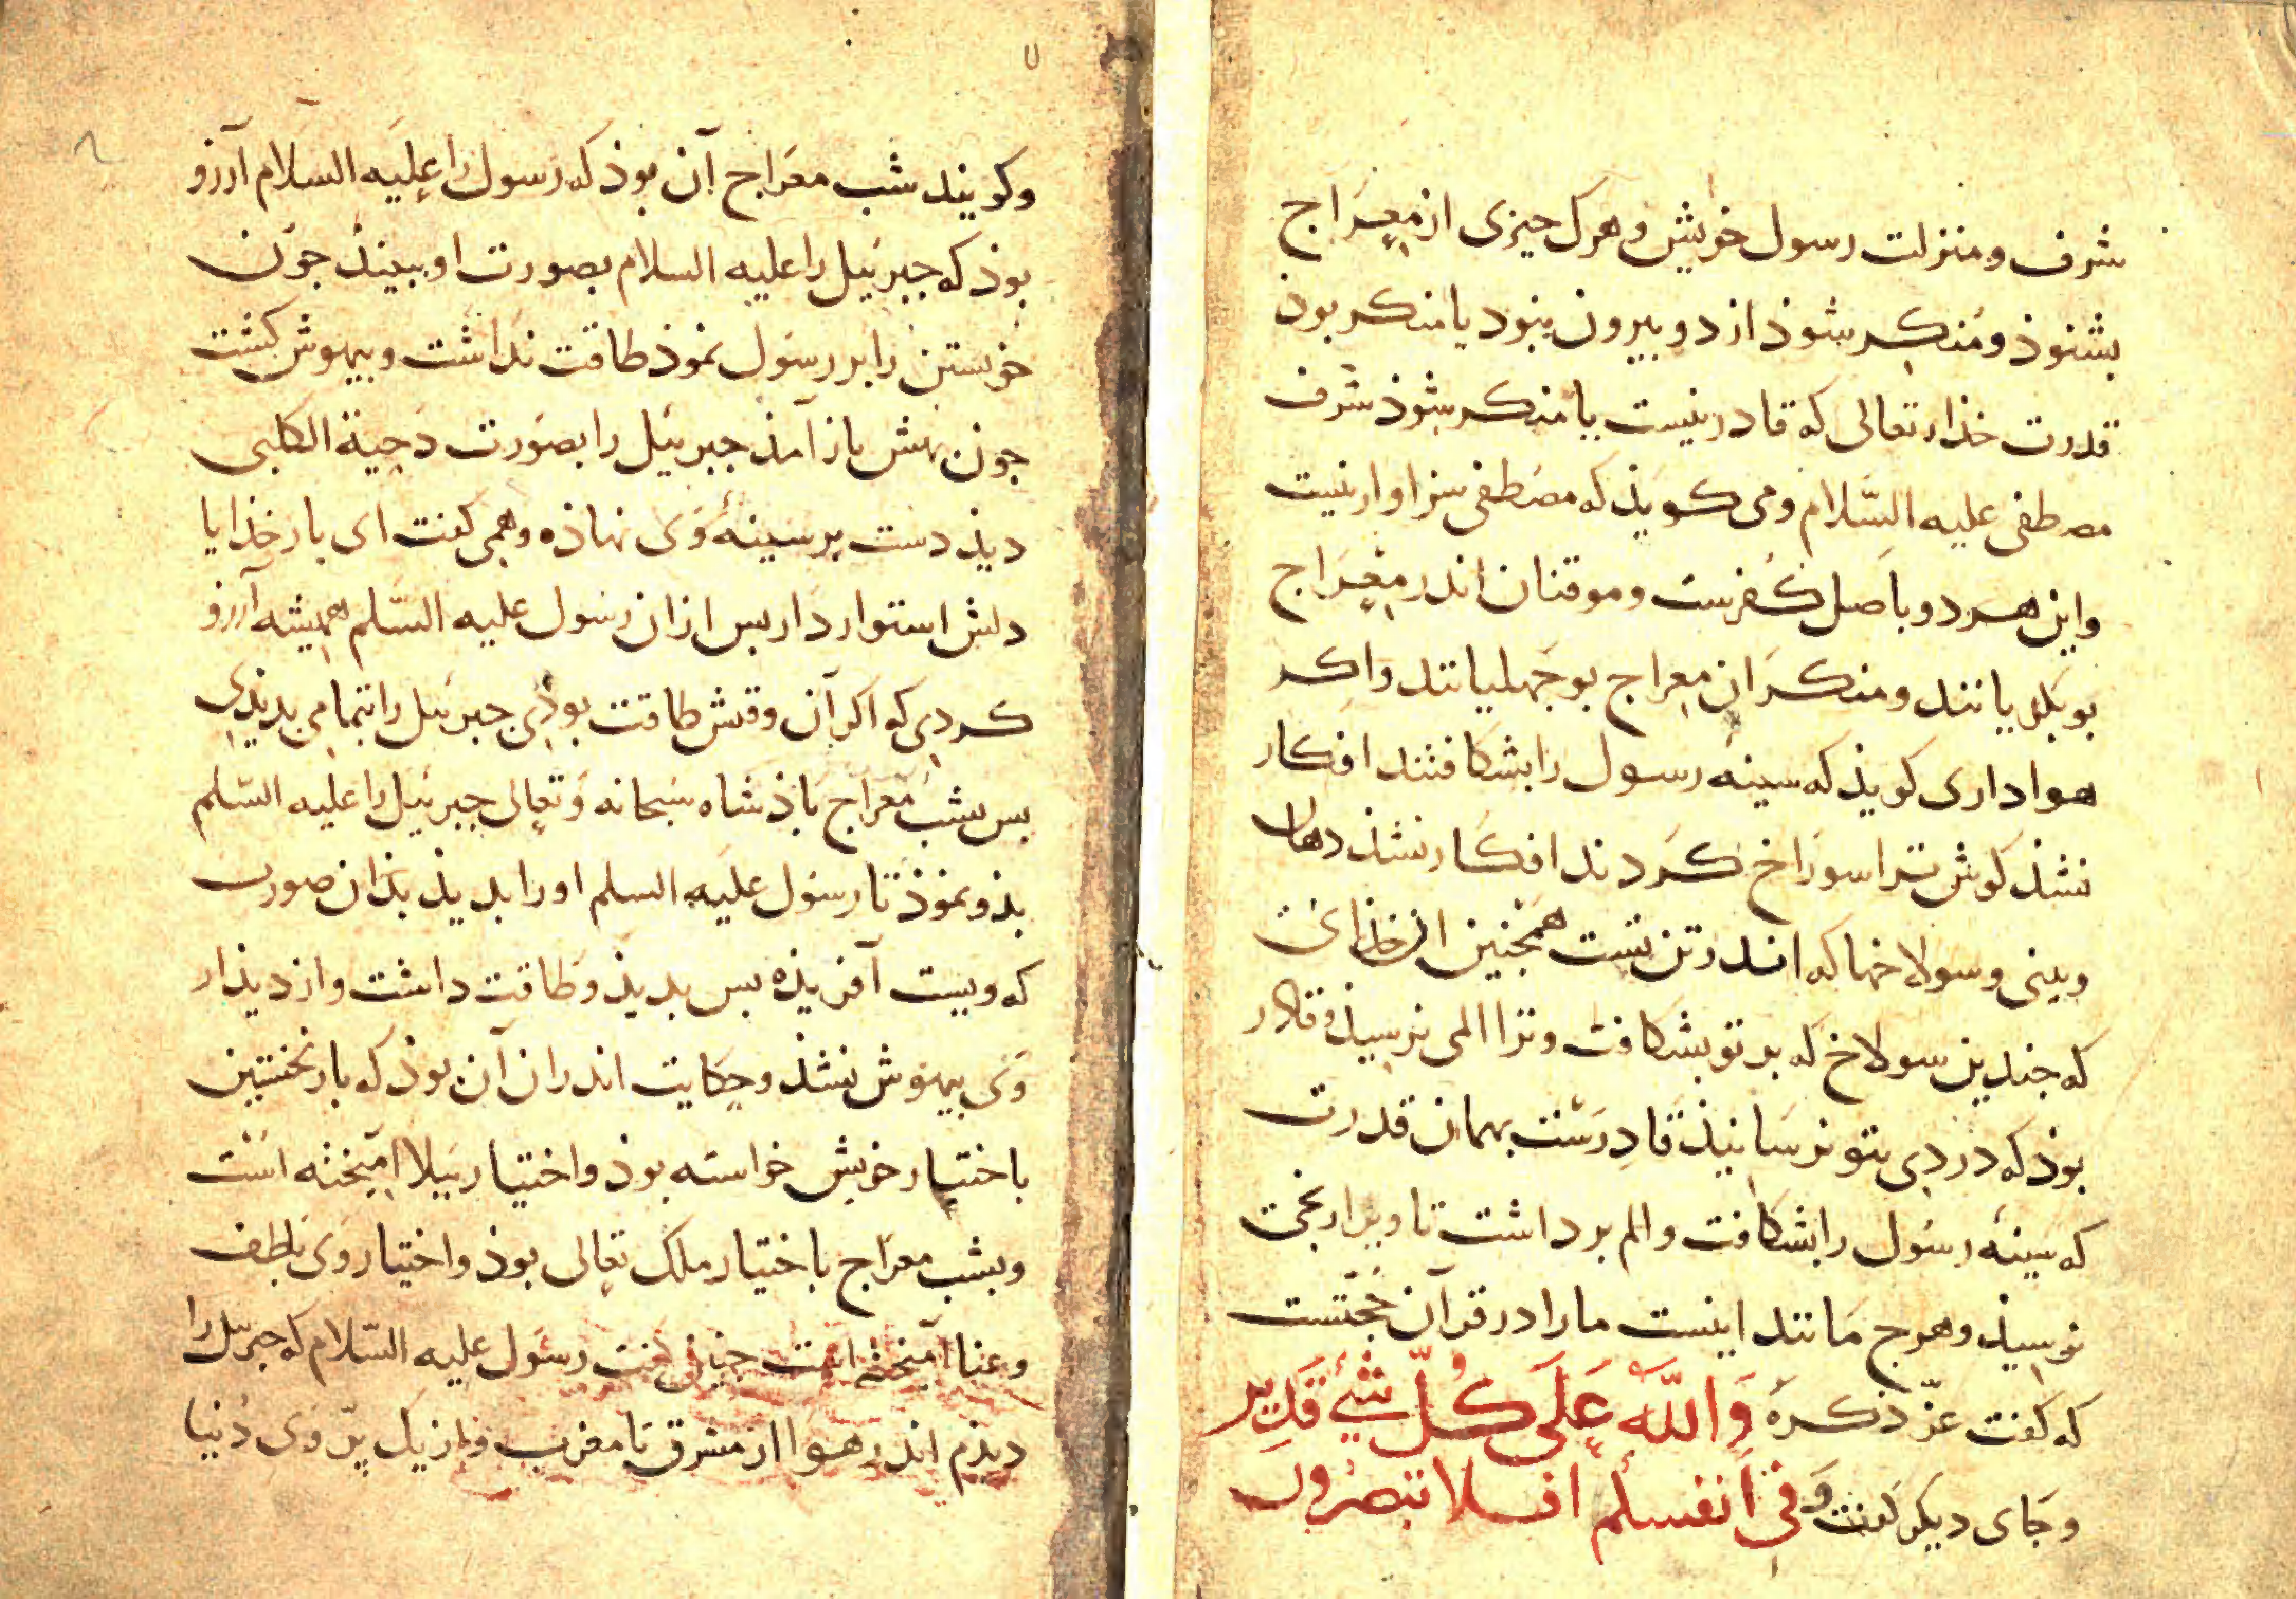 شرف و منزلت رسول خویش و هرک چیزی از معراج
بشنوذ و منکر شوذ از دو بیرون نبود یا منکر بوذ
قدرت خذاء تعالی که قادر نیست یا منکر شوذ شرف
مصطفی علیه السّلام و می کویذ که مصطفی سزاوار نیست
و این هر دو باصل کفرست و موقنان اندر معراج
بوبکریانند و منکران معراج بوجهلیانند و اکر
هواداری کویذ که سینه رسول را بشکافتند افکار
نشذ کوش ترا سوراخ کردند افکار نشذ دهان
و بینی و سولاخها که اندر تن تست همچنین ان خذائی
که جندین سولاخ که بر تو بشکافت و ترا المی نرسیذ و قادر
بوذ که دردی بتو نرسانیذ قادرست بهمان قدرت
که سینه رسول را بشکافت و الم برداشت تا ویرا رنجی
نرسیذ و هرج مانند اینست ما را در قرآن حجّتست
که کفت عزّ ذکره وَاللّه عَلَی کُلّ شَیْءٍ قَدِیر
و جای دیکر کفت و فی انفسکم افلا تبصرون
۷
۸
و کویند شب معراج آن بوذ که رسول را علیه السلام آرزو
بوذ که جبرئیل را علیه السلام بصورت او ببینذ جون
خویستن را بر رسول نموذ طاقت نداشت و بیهوش کشت
جون بهش باز آمذ جبرئیل را بصورت دحیة الکلبی
دیذ دست بر سینهٔ وی نهاذه و همی کفت ای بار خذایا
دلش استوار دار بس از ان رسول علیه السّلم همیشه آرزو
کردی که اکر آن وقتش طاقت بوذی جبرئیل را بتمامی بدیذی
بس بشب معراج باذشاه سبحانه و تعالی جبرئیل را علیه السّلم
بذو نموذ تا رسول علیه السلم او را بدیذ بذان صورت
که ویست آفریذه بس بدیذ و طاقت داشت و از دیذار
وی بیهوش نشذ و حکایت اندران آن بوذ که بار نخستین
باختیار خویش خواسته بوذ و اختیار ببلا آمیخته است
و بشب معراج باختیار ملک تعالی بوذ و اختیار وی بلطف
و عنا آمیخته است جنین کفت رسول علیه السّلام که جبرئیل را
دیذم اندر هوا از مشرق تا مغرب و از یک پرّ وی دنیا